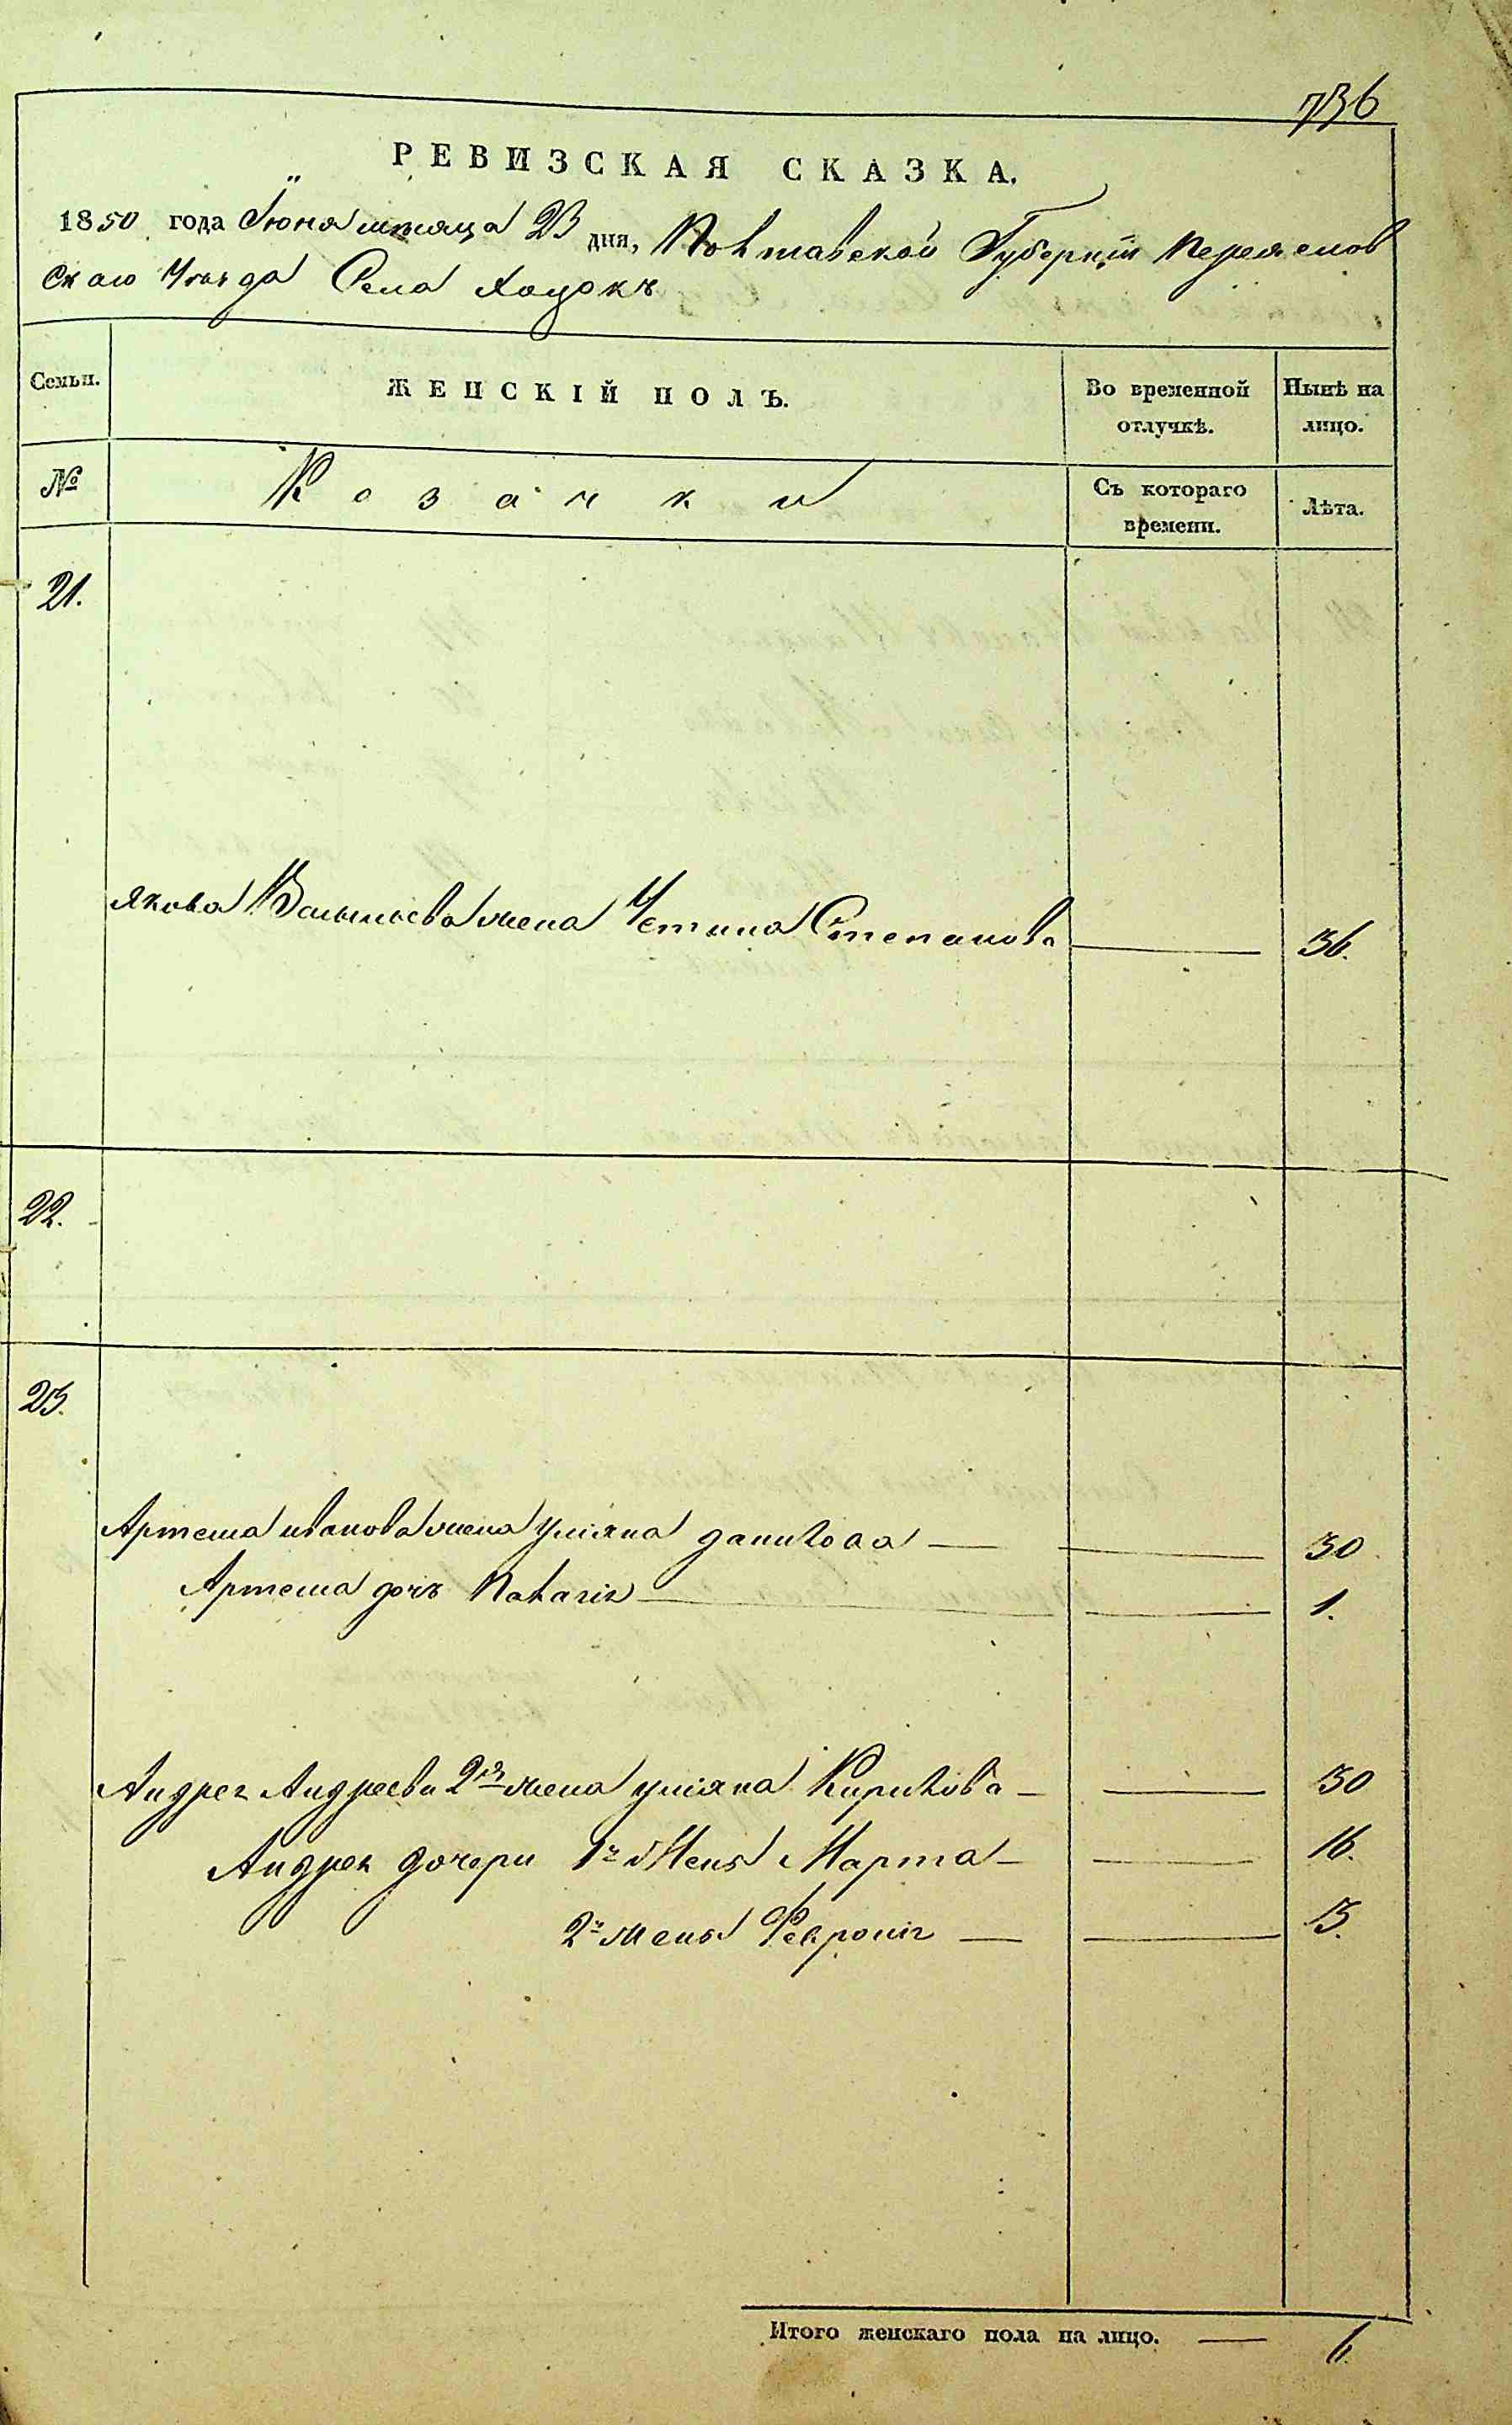 736
РЕВИЗСКАЯ СКАЗКА.
1850 года Іюня месяца 23 дня, Полтавской Губерніи Переяслов
скаго Уезда Села Хоцокъ
Семьи. ЖЕНСКІЙ ПОЛЪ. Во временной отлучкѣ. Нынѣ на лицо.
№ Козачки Съ котораго времени. Лѣта.
21.
Якова Васильева жена Устина Степанова 36.
22.
23.
Артема иванова жена уліяна данилова 30
Артема дочь Наталія 1.
Андрея Андреева 2я жена уліяна Кирилова 30
Андрея дочери 1й жены Марта 16.
2й жены Феврониа 13.
Итого женскаго пола на лицо. 6.